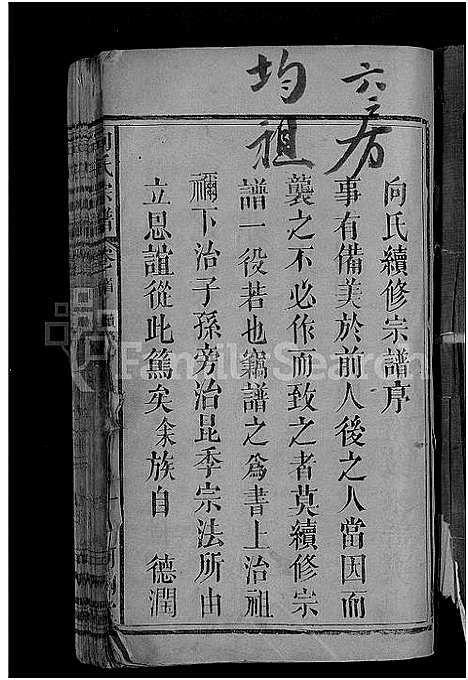 六房
均祖
向氏續修宗譜序
事有備美於前人後之人當因而
襲之不必作而致之者莫續修宗
譜一役若也竊譜之爲書上治祖
禰下治子孫旁治昆季宗法所由
立恩誼從此篤矣余族自 德潤
向氏宗譜 卷首
FamilySearch